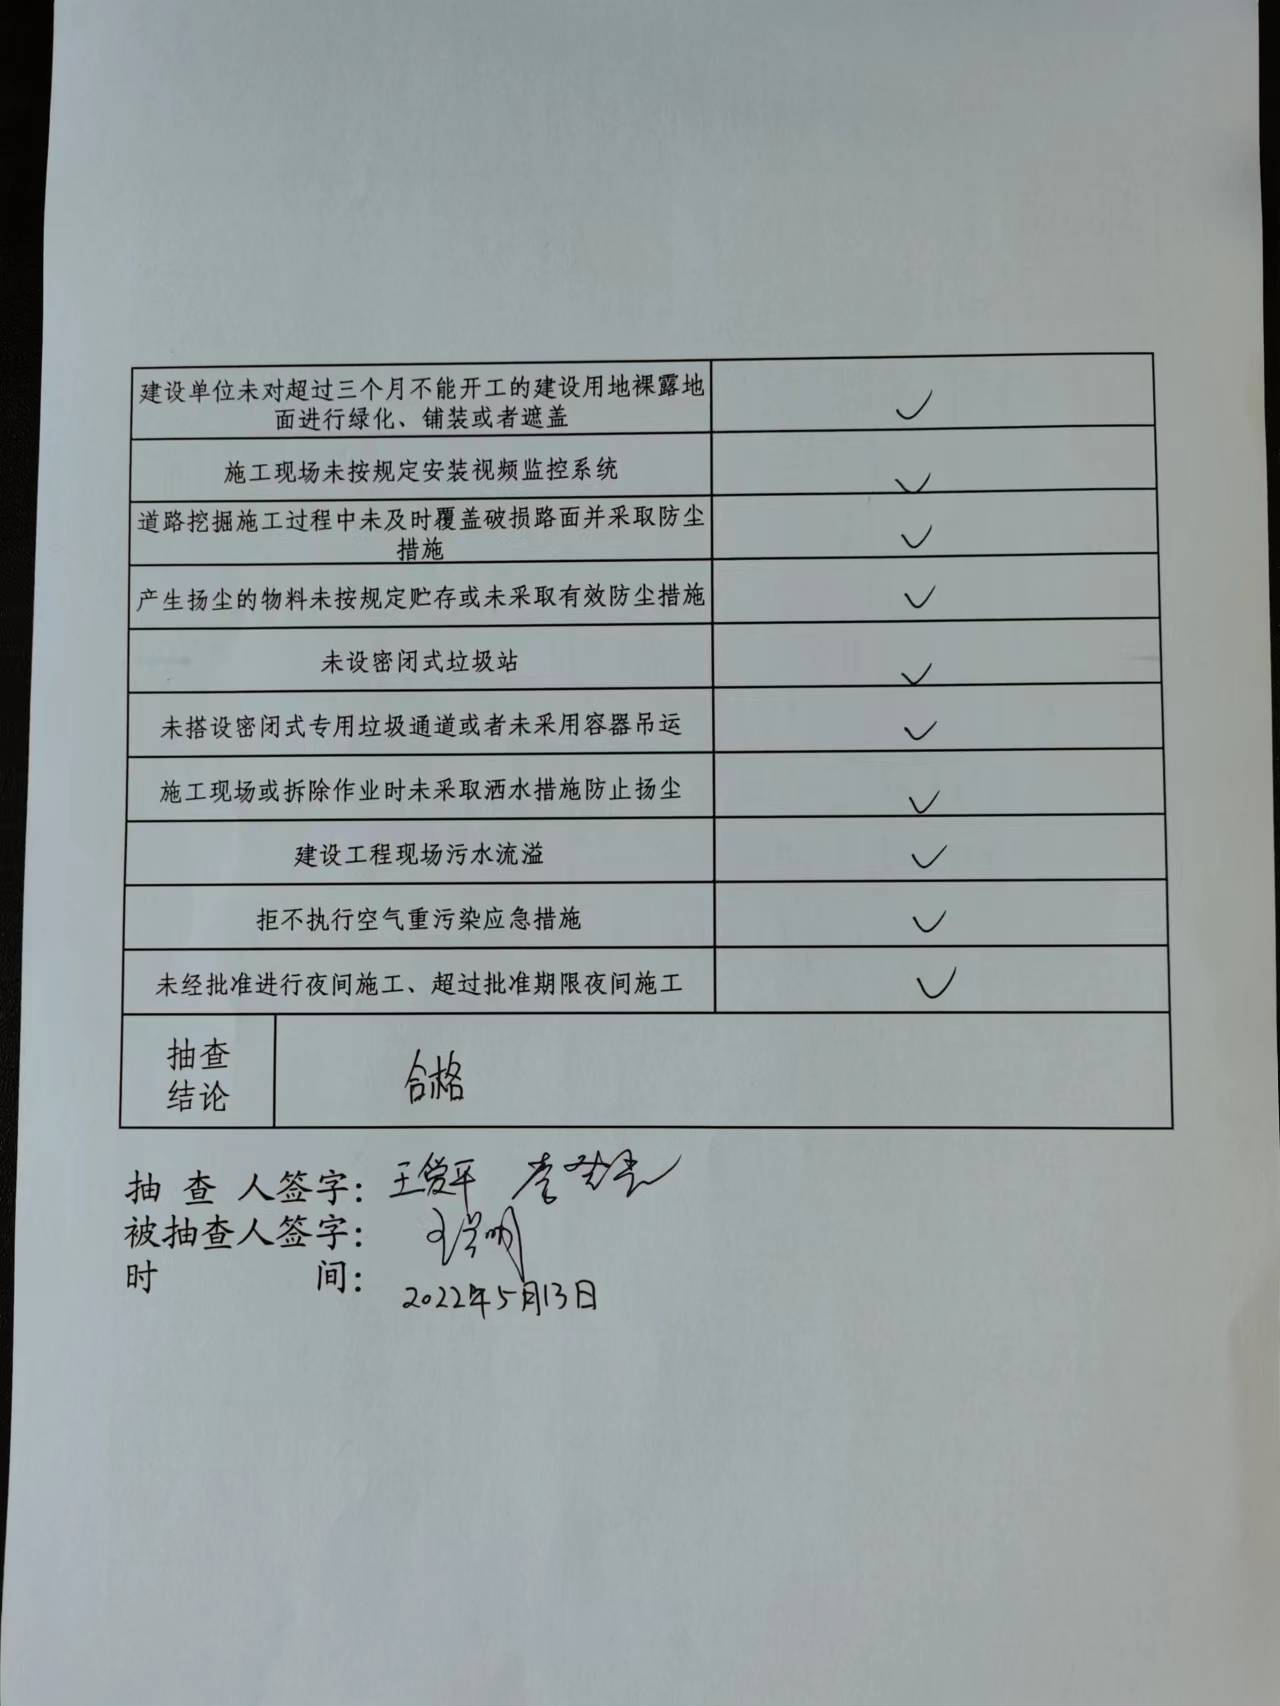 建设单位未对超过三个月不能开工的建设用地裸露地
面进行绿化、铺装或者遮盖
✓
施工现场未按规定安装视频监控系统
✓
道路挖掘施工过程中未及时覆盖破损路面并采取防尘
措施
✓
产生扬尘的物料未按规定贮存或未采取有效防尘措施
✓
未设密闭式垃圾站
✓
未搭设密闭式专用垃圾通道或者未采用容器吊运
✓
施工现场或拆除作业时未采取洒水措施防止扬尘
✓
建设工程现场污水流溢
✓
拒不执行空气重污染应急措施
✓
未经批准进行夜间施工、超过批准期限夜间施工
✓
抽查
结论
合格
抽 查 人签字：王爱平
被抽查人签字：
时 间：
2022年5月13日